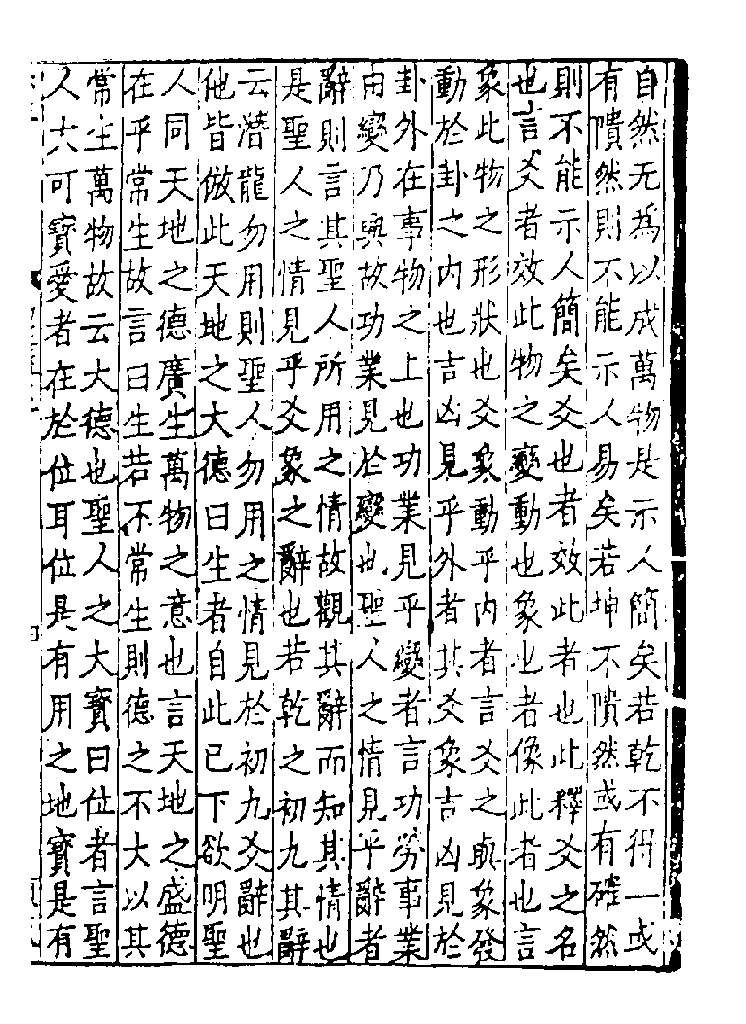 自然无為以成萬物是示人簡矣若乾不得一或
有隤然則不能示人易矣若坤不隤然或有確然
則不能示人簡矣爻也者效此者也此釋爻之名
也言爻者效此物之變動也象也者像此者也言
象此物之形狀也爻象動乎内者言爻之與象發
動於卦之内也吉凶見乎外者其爻象吉凶見於
卦外在事物之上也功業見乎變者言功勞事業
由變乃興故功業見於變也聖人之情見乎辭者
辭則言其聖人所用之情故觀其辭而知其情也
是聖人之情見乎爻象之辭也若乾之初九其辭
云潛龍勿用則聖人勿用之情見於初九爻辭也
他皆倣此天地之大德曰生者自此已下欲明聖
人同天地之德廣生萬物之意也言天地之盛德
在乎常生故言曰生若不常生則德之不大以其
常生萬物故云大德也聖人之大寳曰位者言聖
人大可寳愛者在於位耳位是有用之地寳是有